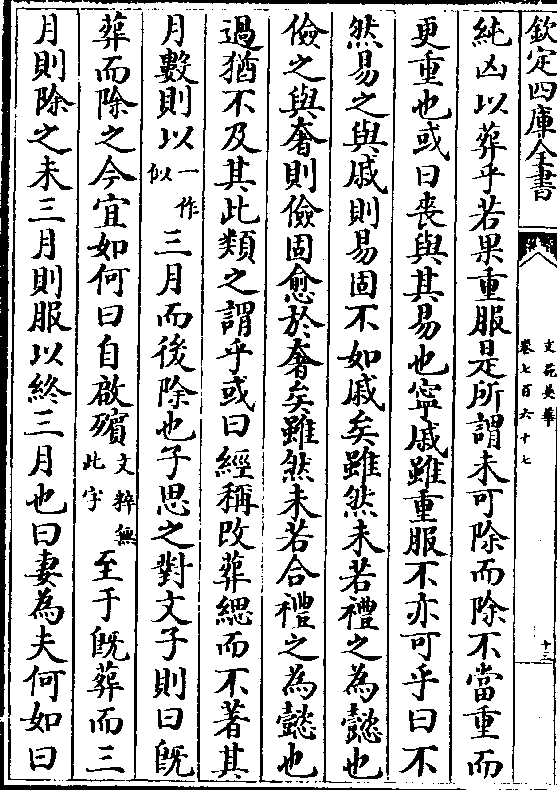 欽定四庫全書
文苑英華
卷七百六十七
十三
純凶以葬乎若果重服是所謂未可除而除不當重而
更重也或曰喪與其易也寧戚雖重服不亦可乎曰不
然易之與戚則易固不如戚矣雖然未若禮之為懿也
儉之與奢則儉固愈於奢矣雖然未若合禮之為懿也
過猶不及其此類之謂乎或曰經稱改葬緦而不著其
月數則以一作似三月而後除也子思之對文子則曰旣
葬而除之今宜如何曰自啟殯文粹無此字至于旣葬而三
月則除之未三月則服以終三月也曰妻為夫何如曰